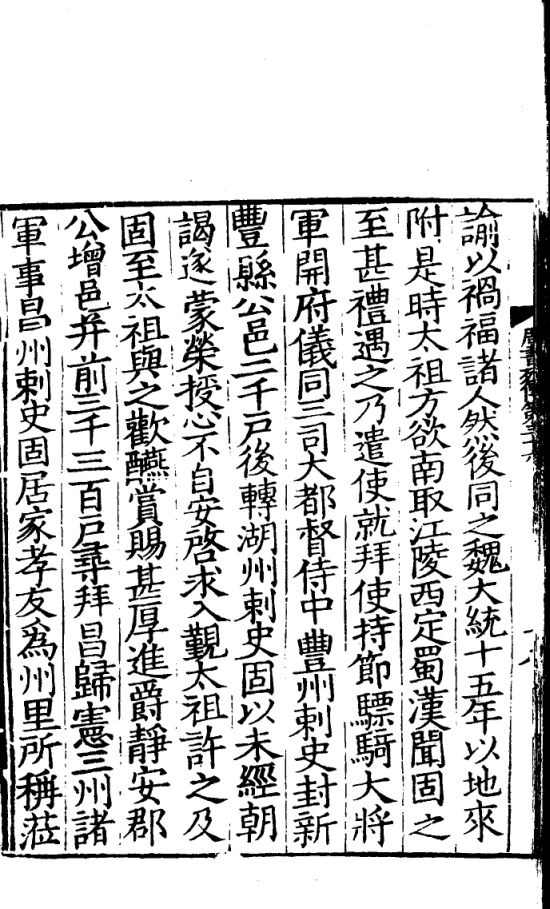 諭以禍福諸人然後同之魏大統十五年以地來
附是時太祖方欲南取江陵西定蜀漢聞固之
至甚禮遇之乃遣使就拜使持節驃騎大將
軍開府儀同三司大都督侍中豐州刺史封新
豐縣公邑二千戶後轉湖州刺史固以未經朝
謁遂蒙榮授心不自安啓求入覲太祖許之及
固至太祖與之歡讌賞賜甚厚進爵靜安郡
公增邑并前三千三百戶尋拜昌歸憲三州諸
軍事昌州刺史固居家孝友爲州里所稱蒞